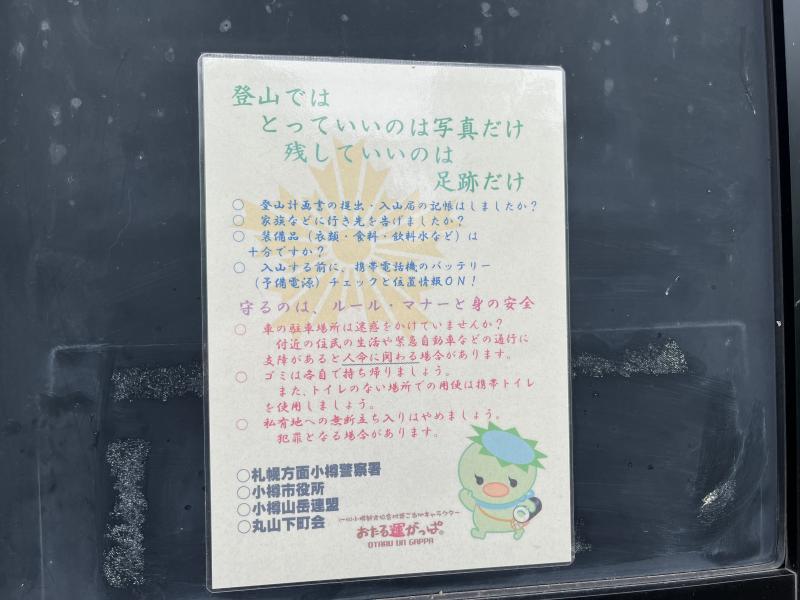 登山では
とっていいのは写真だけ
残していいのは
足跡だけ
○ 登山計画書の提出・入山届の記帳はしましたか?
○ 家族などに行き先を告げましたか?
○ 装備品（衣類・食料・飲料水など）は
十分ですか?
○ 入山する前に、携帯電話機のバッテリー
（予備電源）チェックと位置情報ON!
守るのは、ルール・マナーと身の安全
○ 車の駐車場所は迷惑をかけていませんか?
付近の住民の生活や緊急自動車などの通行に
支障があると人命に関わる場合があります。
○ ゴミは各自で持ち帰りましょう。
また、トイレのない場所での用便は携帯トイレ
を使用しましょう。
○ 私有地への無断立ち入りはやめましょう。
犯罪となる場合があります。
○札幌方面小樽警察署
○小樽市役所
○小樽山岳連盟
○丸山下町会
おたる運がっぱ。
OTARU UN GAPPA